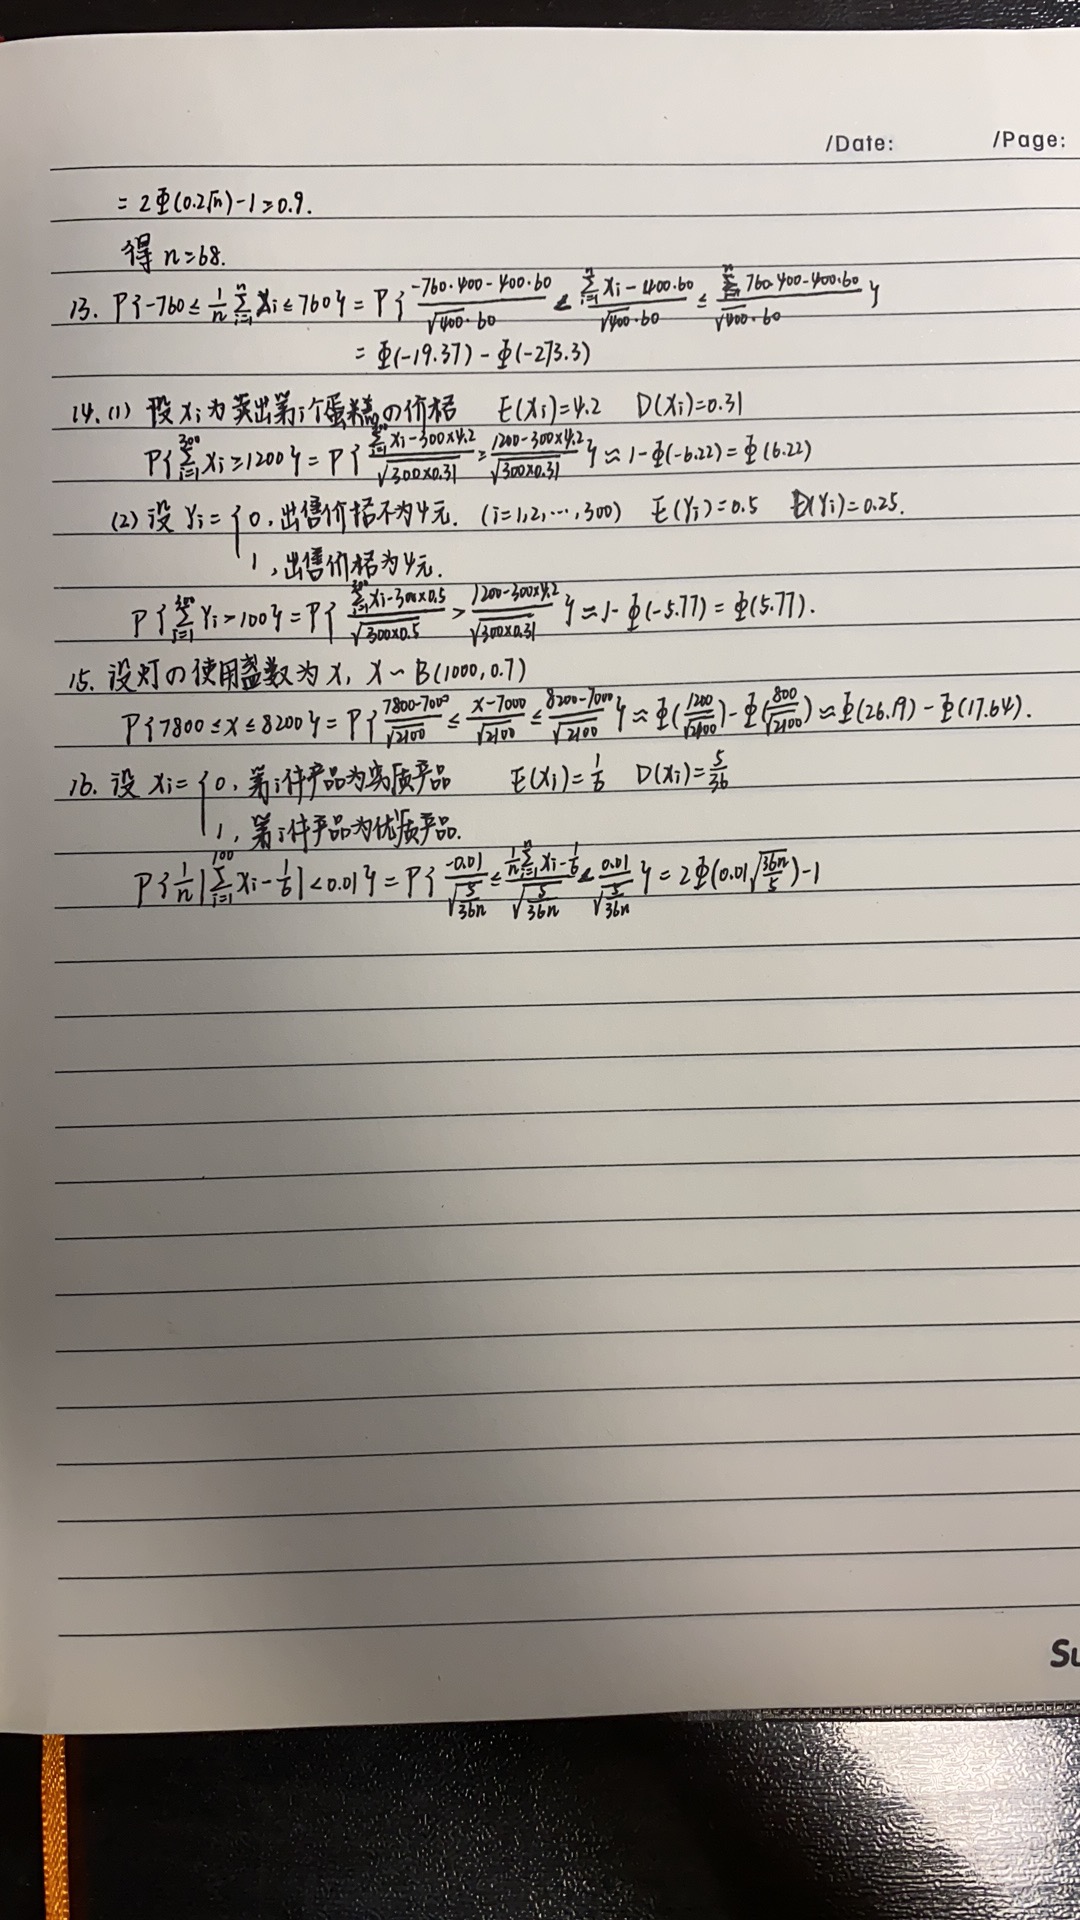 /Date: /Page:
= 2Φ(0.2√n)-1≥0.9.
得 n=68.
13. P{-760 ≤ 1/n ∑_{i=1}^{n} Xi ≤ 760} = P{ (-760·400-400·60)/(√400·60) ≤ (∑_{i=1}^{n} Xi-400·60)/(√400·60) ≤ (760·400-400·60)/(√400·60) }
= Φ(-19.37) - Φ(-273.3)
14. (1) 设 Xi 为卖出第i个蛋糕の价格 E(Xi)=4.2 D(Xi)=0.31
P{∑_{i=1}^{300} Xi ≥ 1200} = P{ (∑_{i=1}^{300} Xi-300×4.2)/√(300×0.31) ≥ (1200-300×4.2)/√(300×0.31) } ≈ 1-Φ(-6.22) = Φ(6.22)
(2) 设 Yi = { 0, 出售价格不为4元. (i=1,2,…,300) E(Yi)=0.5 D(Yi)=0.25.
1, 出售价格为4元.
P{∑_{i=1}^{300} Yi > 100} = P{ (∑_{i=1}^{300} Xi-300×0.5)/√(300×0.5) > (1200-300×4.2)/√(300×0.31) } ≈ 1-Φ(-5.77) = Φ(5.77).
15. 设灯の使用盏数为 X, X~B(1000, 0.7)
P{7800 ≤ X ≤ 8200} = P{ (7800-7000)/√2100 ≤ (X-7000)/√2100 ≤ (8200-7000)/√2100 } ≈ Φ(1200/√2100) - Φ(800/√2100) ≈ Φ(26.19) - Φ(17.64).
16. 设 Xi = { 0, 第i件产品为实质产品 E(Xi)=1/6 D(Xi)=5/36
1, 第i件产品为优质产品.
P{1/n |∑_{i=1}^{100} Xi-1/6| < 0.01} = P{ -0.01/√(5/36n) ≤ (1/n ∑_{i=1}^{n} Xi-1/6)/√(5/36n) ≤ 0.01/√(5/36n) } = 2Φ(0.01√(36n/5))-1
Su